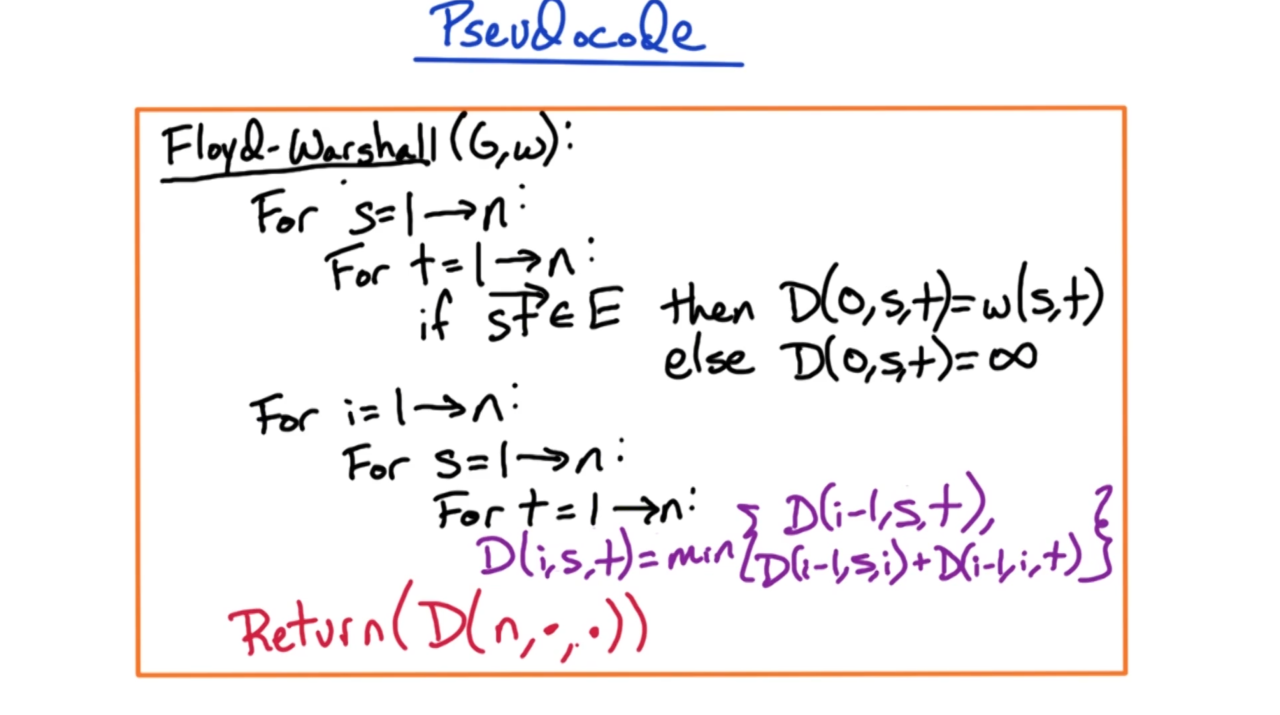 Pseudocode
Floyd-Warshall (G,w):
For s=1→n:
For t=1→n:
if st∈E then D(0,s,t)=w(s,t)
else D(0,s,t)=∞
For i=1→n:
For s=1→n:
For t=1→n:
D(i,s,t)=min{D(i-1,s,t),
D(i-1,s,i)+D(i-1,i,t)}
Return(D(n,·,·))